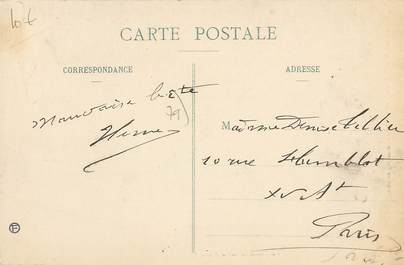 10 €
CARTE POSTALE
CORRESPONDANCE
ADRESSE
Mauvaise bête
79)
Madame Denise Tellier
10 rue Humblot
XV At
Paris